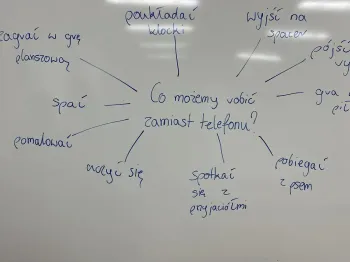 poukładać
klocki
wyjść na
spacer
zagrać w grę
planszową
pójść
spać
Co możemy robić
zamiast telefonu?
gra
pomalować
uczyć się
spotkać
się z
przyjaciółmi
pobiegać
z psem